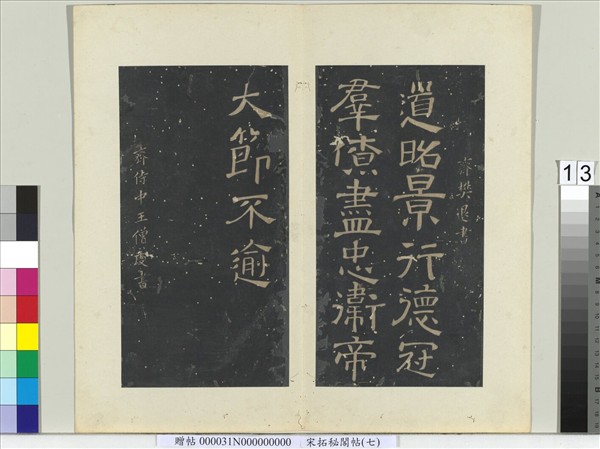 齊樊遜書
道昭景行德冠
羣僚盡忠衛帝
大節不逾
齊侍中王僧虔書
13
贈帖 000031N000000000 宋拓秘閣帖(七)